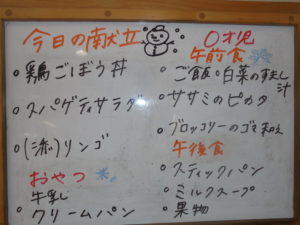 今日の献立
・鶏ごぼう丼
・スパゲティサラダ
・(添)リンゴ
おやつ
牛乳
・クリームパン
0才児
午前食
・ご飯・白菜のすまし汁
・ササミのピカタ
・ブロッコリーのゴマ和え
午後食
・スティックパン
・ミルクスープ
・果物